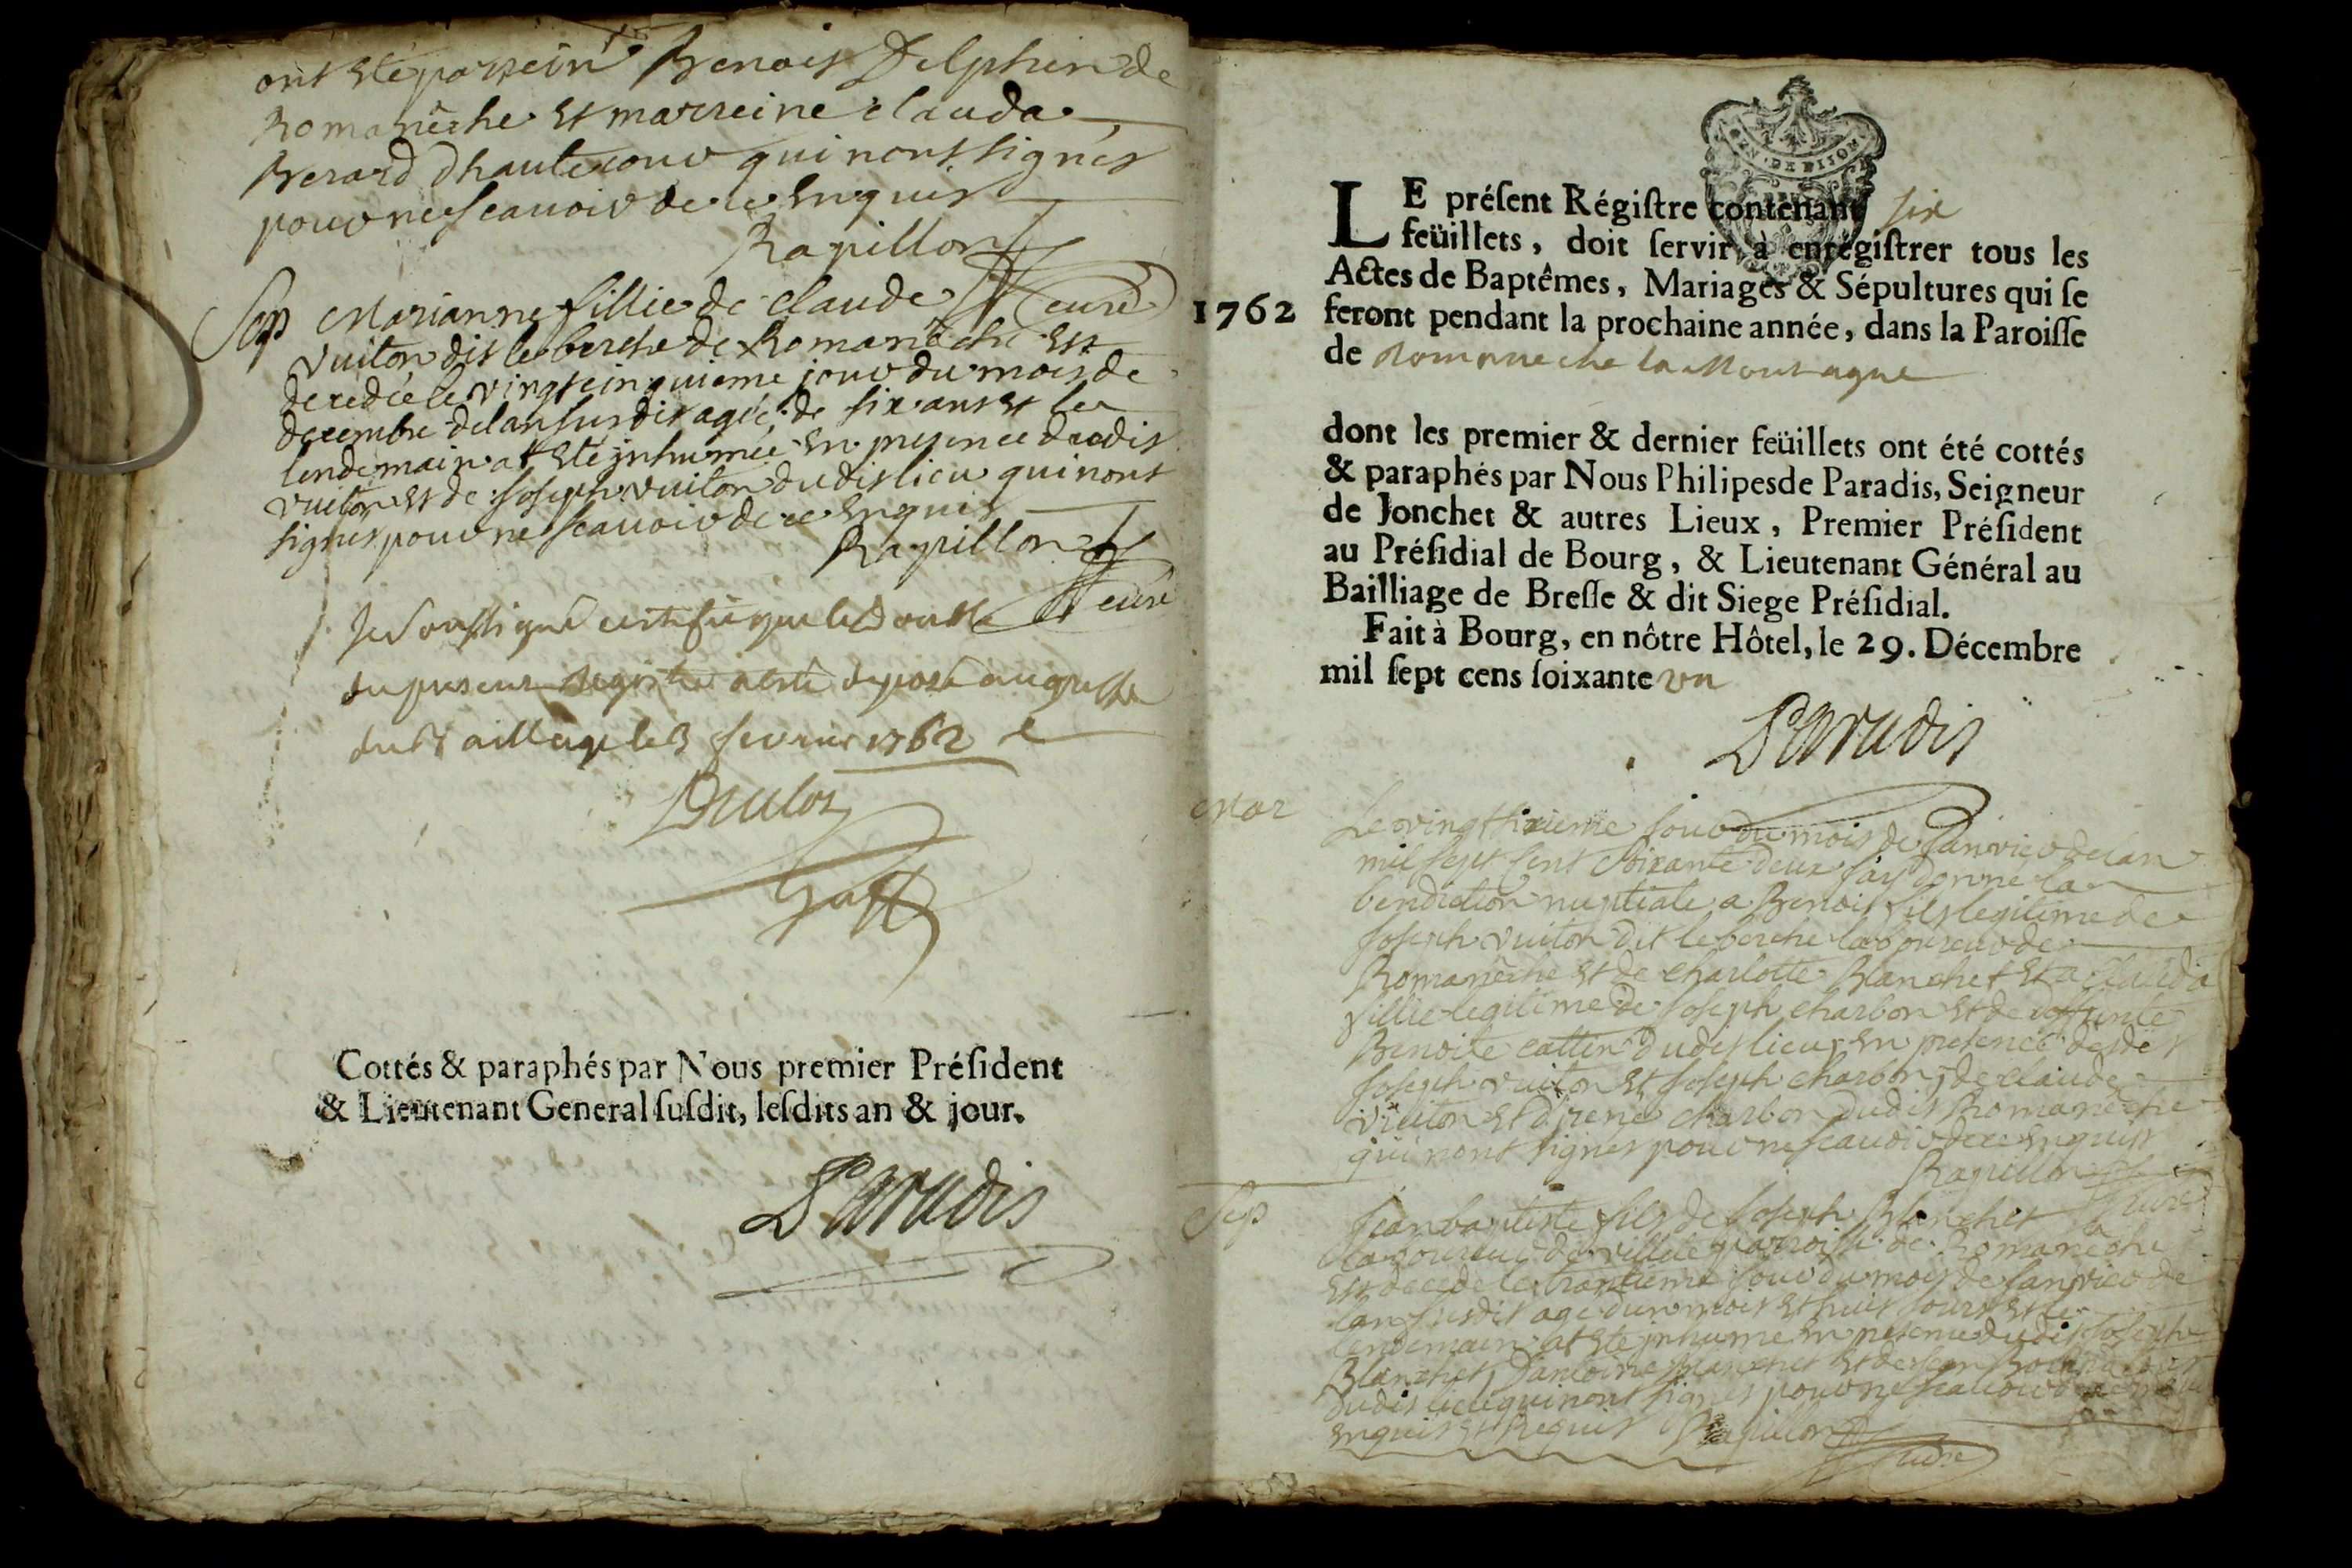 ont ete parrein Benois Delphin de
Romanêche et marreine clauda
Berard dhautecour qui nont signés
pour ne scauoir de ce enquis
Rapillon
curé
Sep Marianne fillie de claude
vuiton dit le berche de Romanêche est
decedée le vingt cinquieme jour du mois de
decembre de lan susdit agée de six ans et le
lendemain at ete jnhumée en presence dudit
vuiton et de Joseph vuiton dudit lieu qui nont
signés pour ne scauoir de ce enquis
Rapillon
curé
Je soussigné certifie que le double
du present registre a esté deposé au greffe
du Bailliage le 3 fevrier 1762
Cottés & paraphés par Nous premier Préſident
& Lieutenant General ſuſdit, leſdits an & jour.
Paradis
GEN · DE DIJON
LE préſent Régiſtre contenant six
feüillets, doit ſervir à enrégiſtrer tous les
Actes de Baptêmes, Mariages & Sépultures qui ſe
1762 feront pendant la prochaine année, dans la Paroiſſe
de Romaneche la Montagne
dont les premier & dernier feüillets ont été cottés
& paraphés par Nous Philipes de Paradis, Seigneur
de Jonchet & autres Lieux, Premier Préſident
au Préſidial de Bourg, & Lieutenant Général au
Bailliage de Breſſe & dit Siege Préſidial.
Fait à Bourg, en nôtre Hôtel, le 29. Décembre
mil ſept cens ſoixante un
Paradis
Mar Le vingt sixieme jour du mois de Janvier de lan
mil sept cent soixante deux jay donné la
benediction nuptiale a Benois fils legitime de
Joseph vuiton dit le berche laboureur de
Romanêche et de charlotte Blanchet et a clauda
fillie legitime de Joseph charbon et de deffunte
Benoite cattin dudit lieu, en presence desdits
Joseph vuiton et Joseph charbon, de claude
vuiton et charbon dudit Romanêche
qui nont signés pour ne scauoir de ce enquis
Rapillon
curé
Sep Jean baptiste fils de Joseph Blanchet
laboureur de villete parroisse de Romanêche
est decedé le trantieme jour du mois de Janvier de
lan susdit agé dun mois et huit jours et le
lendemain at ete jnhumé en presence dudit Joseph
Blanchet, Dantoine Blanchet et de Jean
dudit lieu qui nont signés pour ne scauoir de ce
enquis et Requis Rapillon
curé